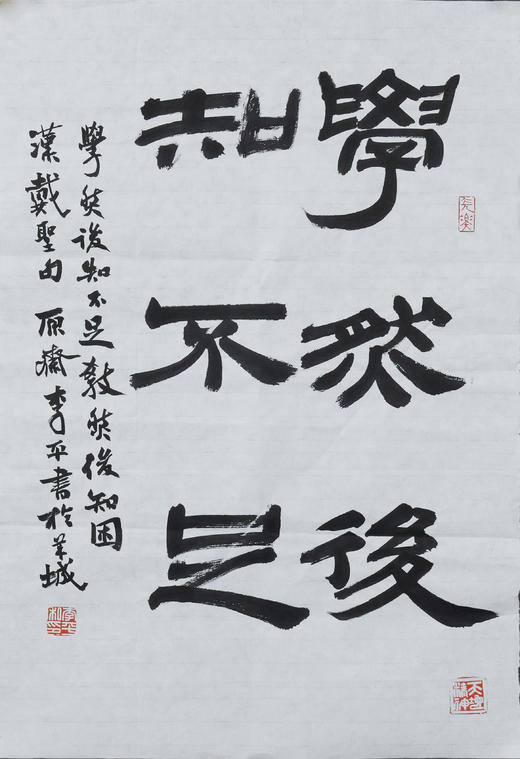 學然後
知不足
學然後知不足教然後知困
漢戴聖句 原齋李平書於羊城